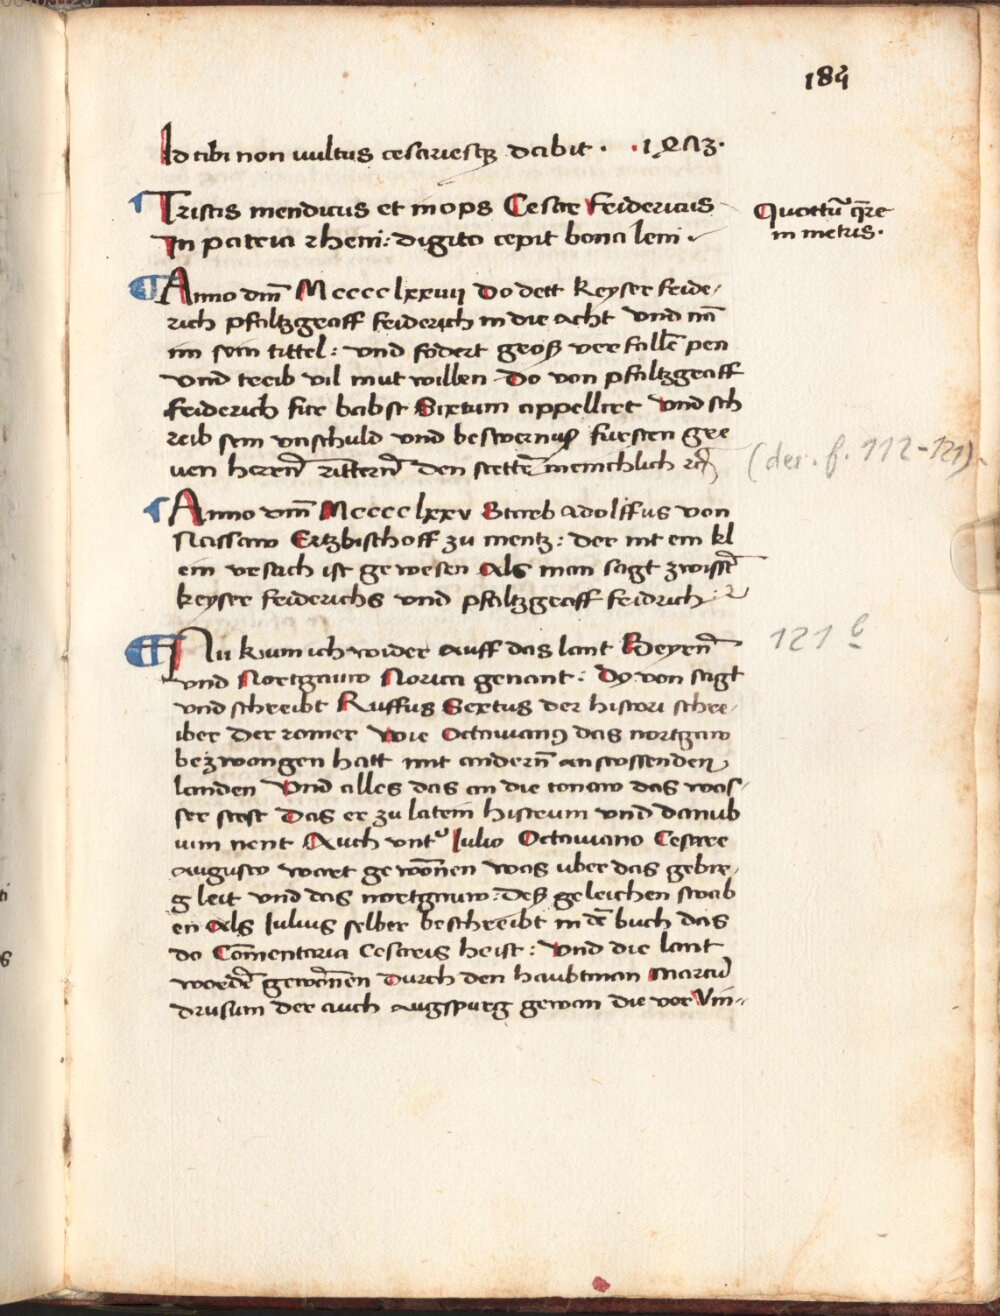 184
Id tibi non uultus cesariesq; dabit · ·1473·
Tristis mendicus et inops Cesar Fridericus
In pateria rheni: digito cepit bona leni ·
Quottū q̄re
in metris·
Anno dm̄ Mcccclxxiiij Do dett keyser fride/
rich pfaltzgraff friderich in die acht vnd nā
im sein tittel: vnd fodert groß ver fallē pen
vnd treib vil mut willen Do von pfaltzgraff
friderich fur babst Sixtum appelliret vnd sch
reib sein vnschuld vnd beswernuß fursten gre
uen herrn̄ rittern̄ den stettē menichlich rc̄
(der. f. 112-121).
Anno dm̄ Mcccclxxv Starb Adolffus von
Nassaw Ertzbischoff zu mentz: der nit ein kl
ein vrsach ist gewesen als man sagt zwisc̄
keyser friderichs vnd pfaltzgraff fridrich: rc
121 b
Nu kum ich wider auff das lant Beyern̄
vnd Nortgauw Norica genant: Do von sagt
vnd schreibt Ruffus Sextus der histori schre/
iber der romer wie Octauianꝰ das nortgaw
bezwongen hatt mit andern̄ anstossenden
landen vnd alles das an die tonaw das was/
ser stost Das er zu latein histrum vnd danub
ium nent Auch vnt' Iulio Octauiano Cesare
augusto wart gewōnen was uber das gebir/
g leit vnd das nortgauw: Deß geleichen swab
en als Iulius selber beschreibt in dē buch das
do Cōmentaria Cesaris heist: vnd die lant
wordē gewōnen durch den haubtman Marcū
drusum der auch augspurg gewan die vor Vin-